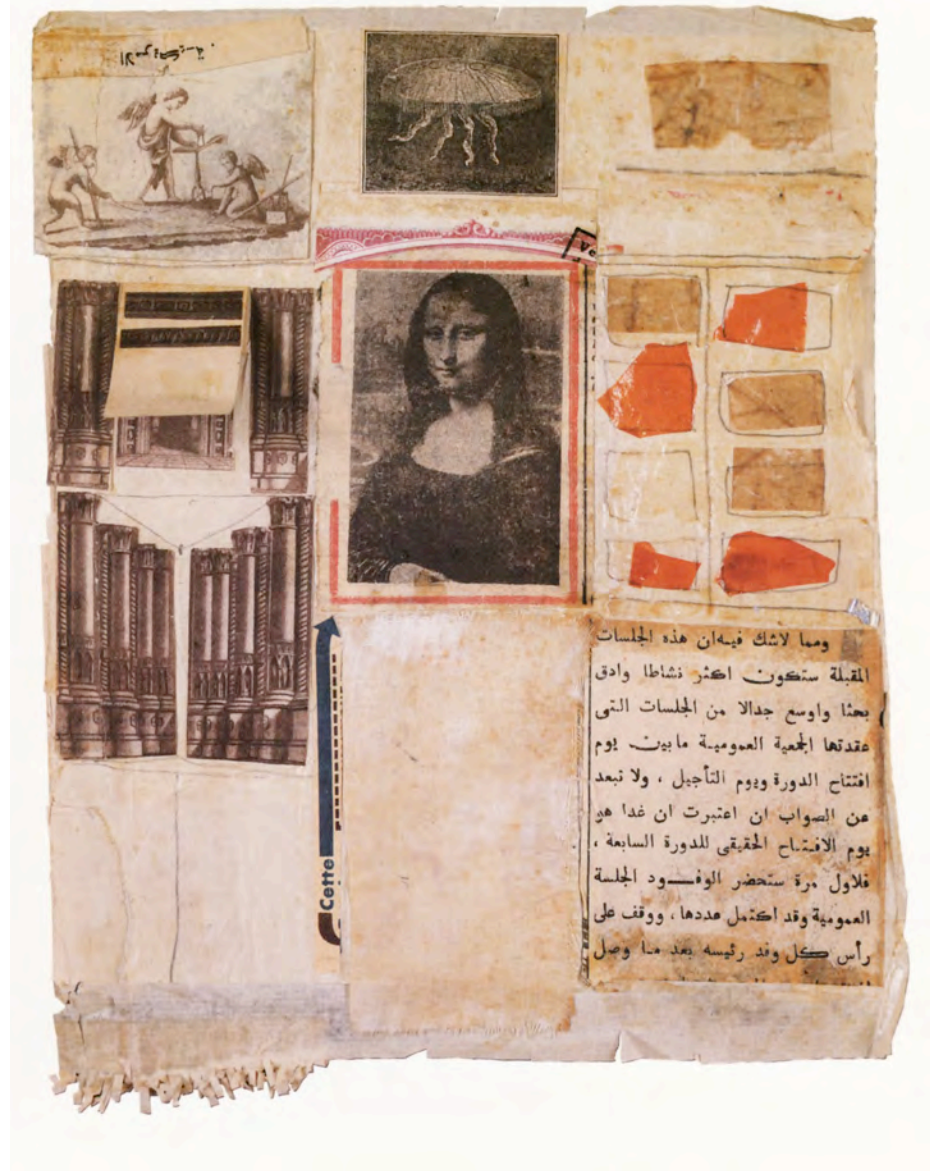 الامريكية.
Ve
ومما لاشك فيه ان هذه الجلسات
المقبلة ستكون اكثر نشاطا وادق
بحثا واوسع جدالا من الجلسات التى
عقدتها الجمعية العمومية مابين يوم
افتتاح الدورة ويوم التأجيل ، ولا نبعد
عن الصواب ان اعتبرت ان غدا هو
يوم الافتتاح الحقيقى للدورة السابعة ،
فلاول مرة ستحضر الوفود الجلسة
العمومية وقد اكتمل عددها ، ووقف على
رأس كل وفد رئيسه بعد ما وصل
Cette